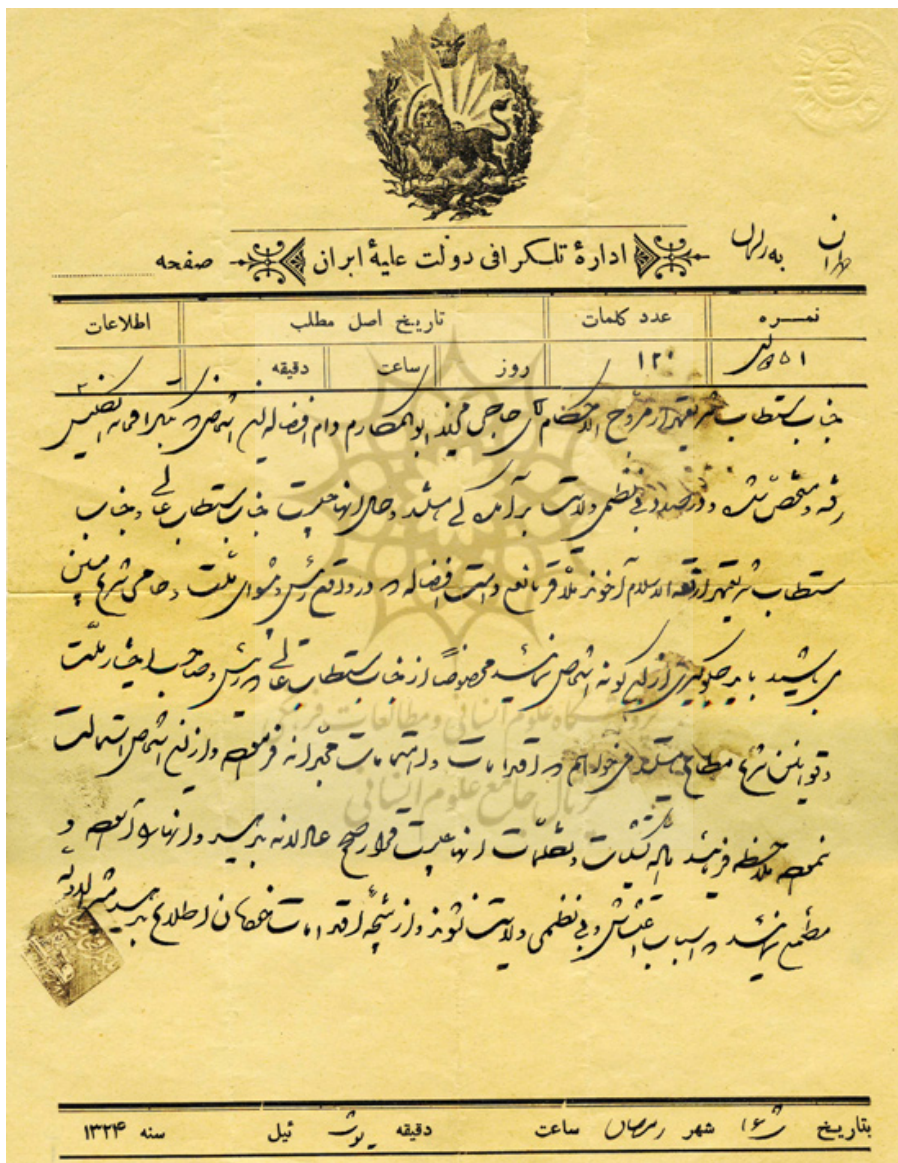 طهران به
ادارهٔ تلگرافی دولت علیهٔ ایران صفحه
نمره عدد کلمات تاریخ اصل مطلب اطلاعات
۵۱ ۱۲۰ روز ساعت دقیقه
جناب مستطاب شریعتمدار مروج الاحکام آقای حاجی ابوالمکارم دام افضاله این اشخاص که تلگرافخانه انگلیس
رفته و متحصن شده و در صدد بی نظمی ولایت برآمده اند جناب مستطاب عالی و جناب
مستطاب شریعتمدار ثقة الاسلام آخوند ملا قربانعلی دامت افضاله که در واقع رئیس و پیشوای ملت و حامی شرع مبین
می باشید باید جلوگیری از این گونه اشخاص نمائید مخصوصاً از جناب مستطاب عالی که رئیس و صاحب اختیار ملت
و قوانین شرع مطاع هستید می خواهم که اقدامات و اهتمامات مجدانه فرموده و از این اشخاص استمالت
نموده ملاحظه فرمائید مآل تشکیات و تظلمات آنها چیست قرار صحیح عادلانه بدهید و آنها را آسوده و
مطمئن نمائید که اسباب اغتشاش و بی نظمی ولایت نشوند و از نتیجه اقدامات خودتان اطلاع بدهید مشیرالدوله
بتاریخ ۱۶ شهر رمضان ساعت دقیقه ئیل سنه ۱۳۲۴
پژوهشگاه علوم انسانی و مطالعات فرهنگی
پرتال جامع علوم انسانی